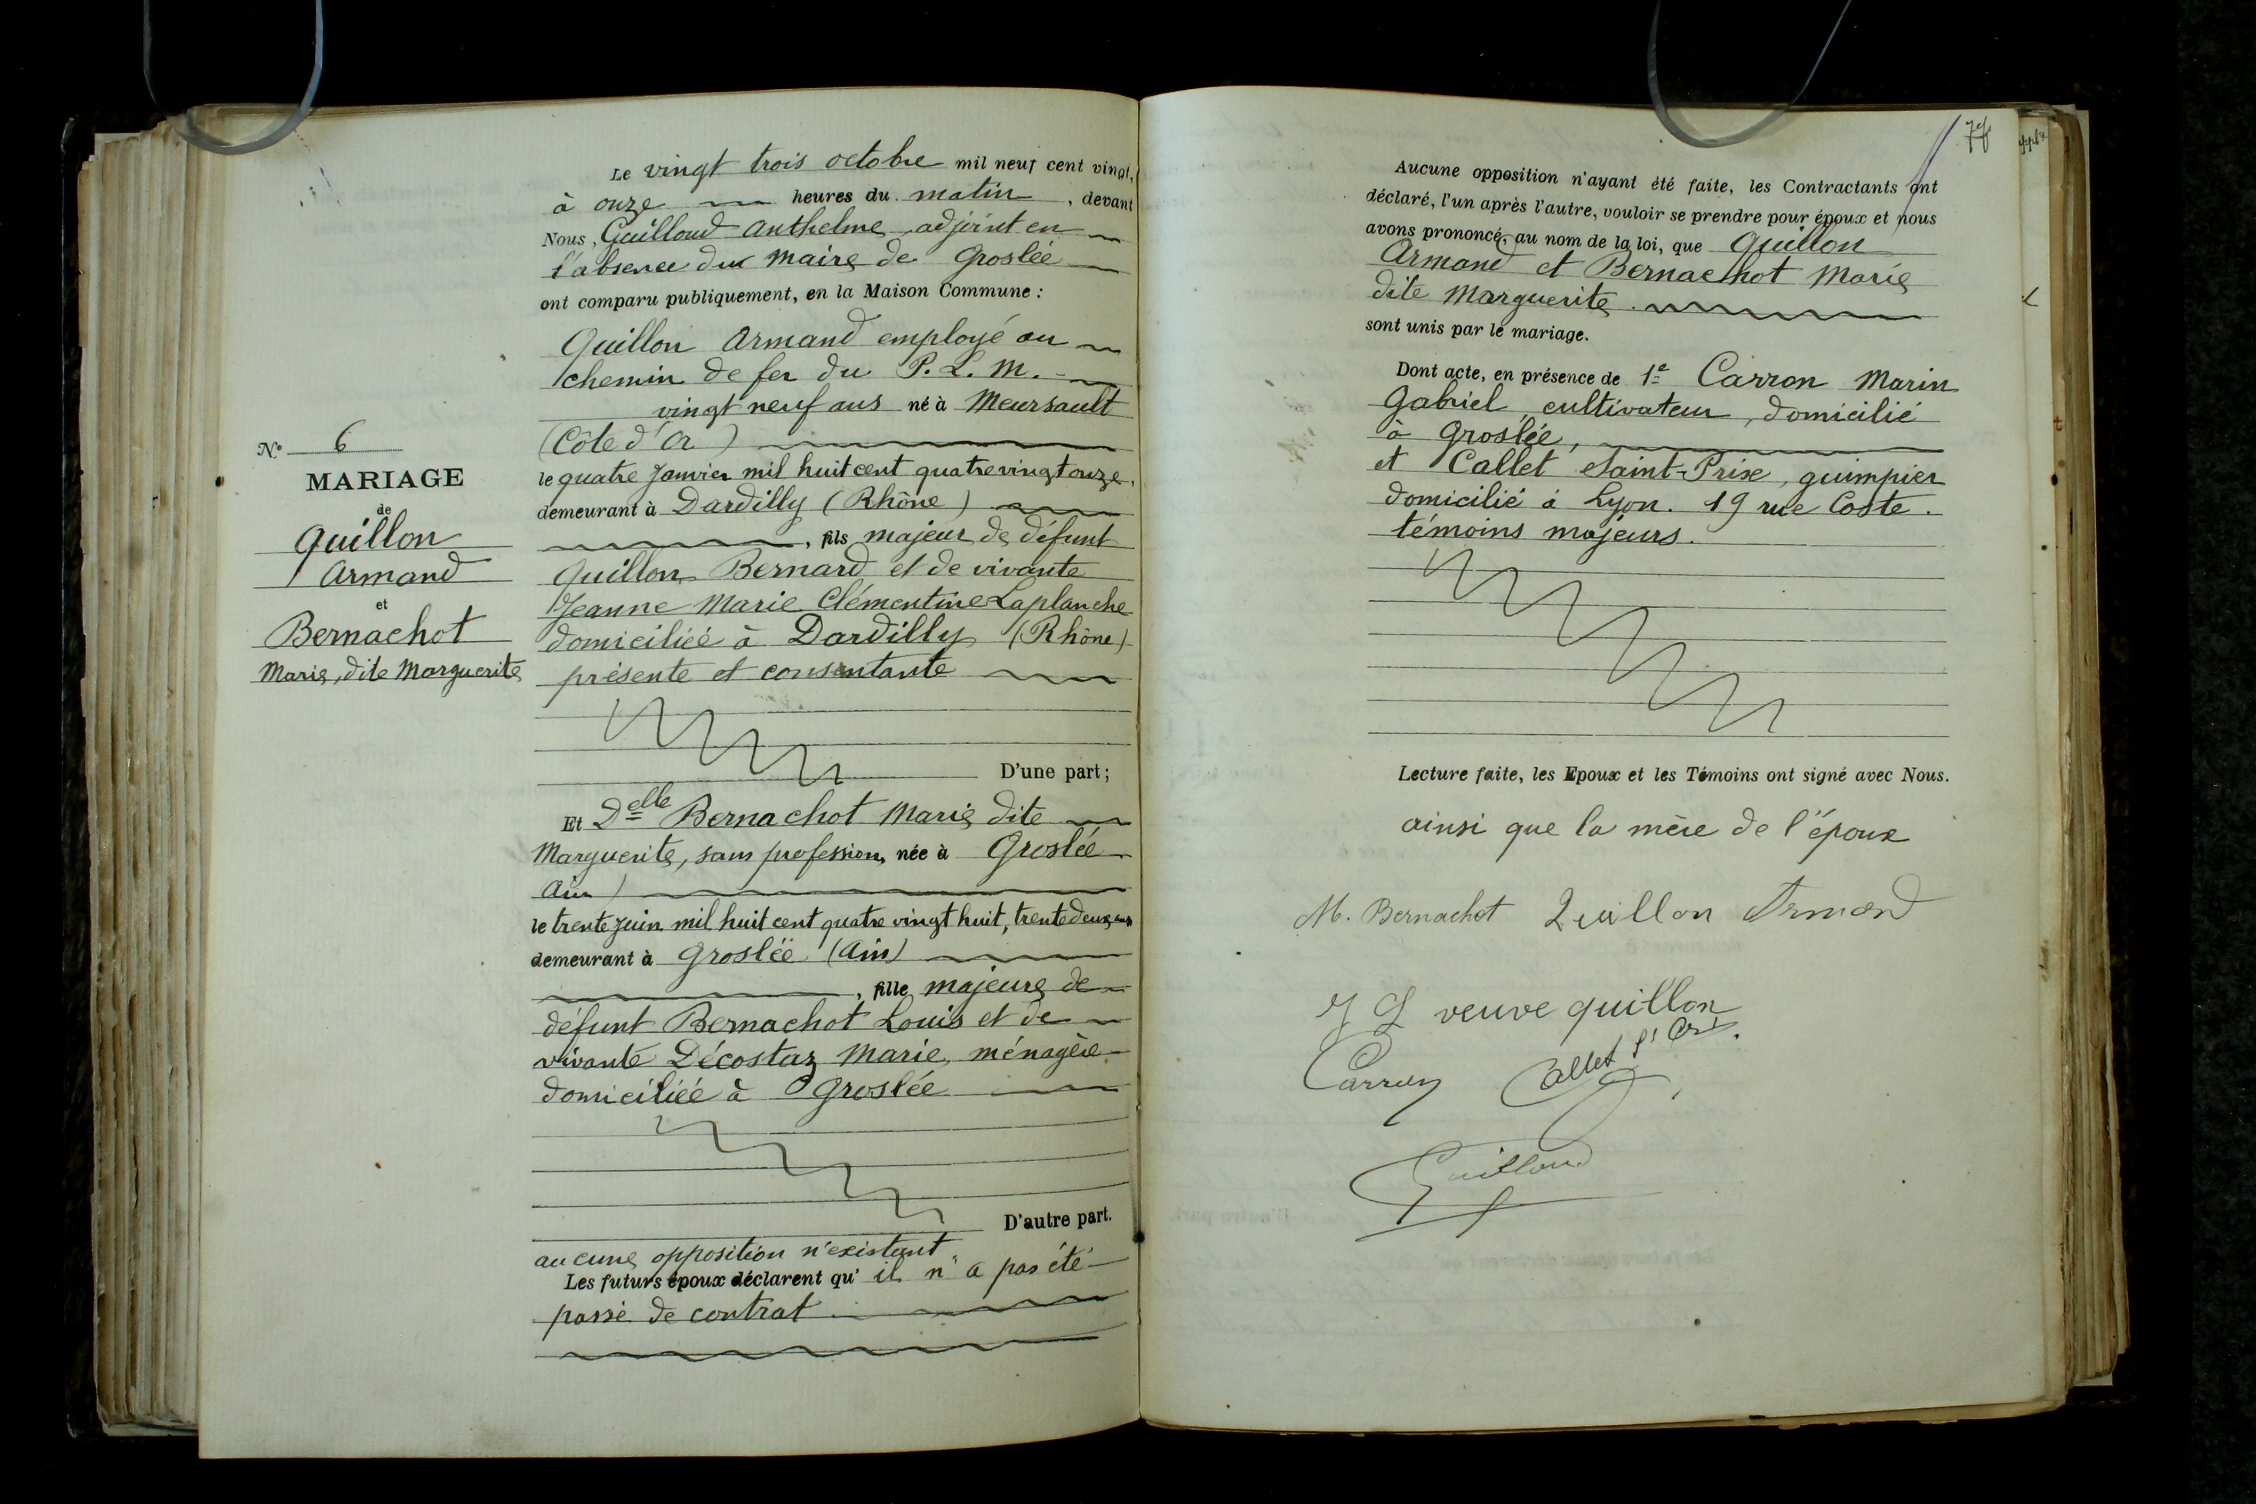 Le vingt trois octobre mil neuf cent vingt,
à onze heures du matin, devant
Nous, Guilloud Anthelme, adjoint en
l'absence du maire de Groslée
ont comparu publiquement, en la Maison Commune :
Quillon Armand employé au
chemin de fer du P. L. M.
vingt neuf ans né à Meursault
(Côte d'Or)
le quatre Janvier mil huit cent quatre vingt onze,
demeurant à Dardilly (Rhône)
, fils majeur de défunt
Quillon Bernard et de vivante
Jeanne Marie Clémentine Laplanche
domiciliée à Dardilly (Rhône)
présente et consentante
D'une part ;
Et Delle Bernachot Marie dite
Marguerite, sans profession, née à Groslée
Ain)
le trente Juin mil huit cent quatre vingt huit, trente deux ans
demeurant à Groslée (Ain)
, fille majeure de
défunt Bernachot Louis et de
vivante Décostaz Marie, ménagère
domiciliée à Groslée
D'autre part.
aucune opposition n'existant
Les futurs époux déclarent qu'il n'a pas été
passé de contrat
N° 6
MARIAGE
de
Quillon
Armand
et
Bernachot
Marie, dite Marguerite
Aucune opposition n'ayant été faite, les Contractants ont
déclaré, l'un après l'autre, vouloir se prendre pour époux et nous
avons prononcé, au nom de la loi, que Quillon
Armand et Bernachot Marie
dite Marguerite.
sont unis par le mariage.
Dont acte, en présence de 1e Carron Marin
Gabriel, cultivateur, domicilié
à Groslée,
et Callet Saint-Prix, guimpier
domicilié à Lyon. 19 rue Coste.
témoins majeurs.
Lecture faite, les Epoux et les Témoins ont signé avec Nous.
ainsi que la mère de l'époux
M. Bernachot Quillon Armand
J L veuve quillon
Carron Callet
Guilloud